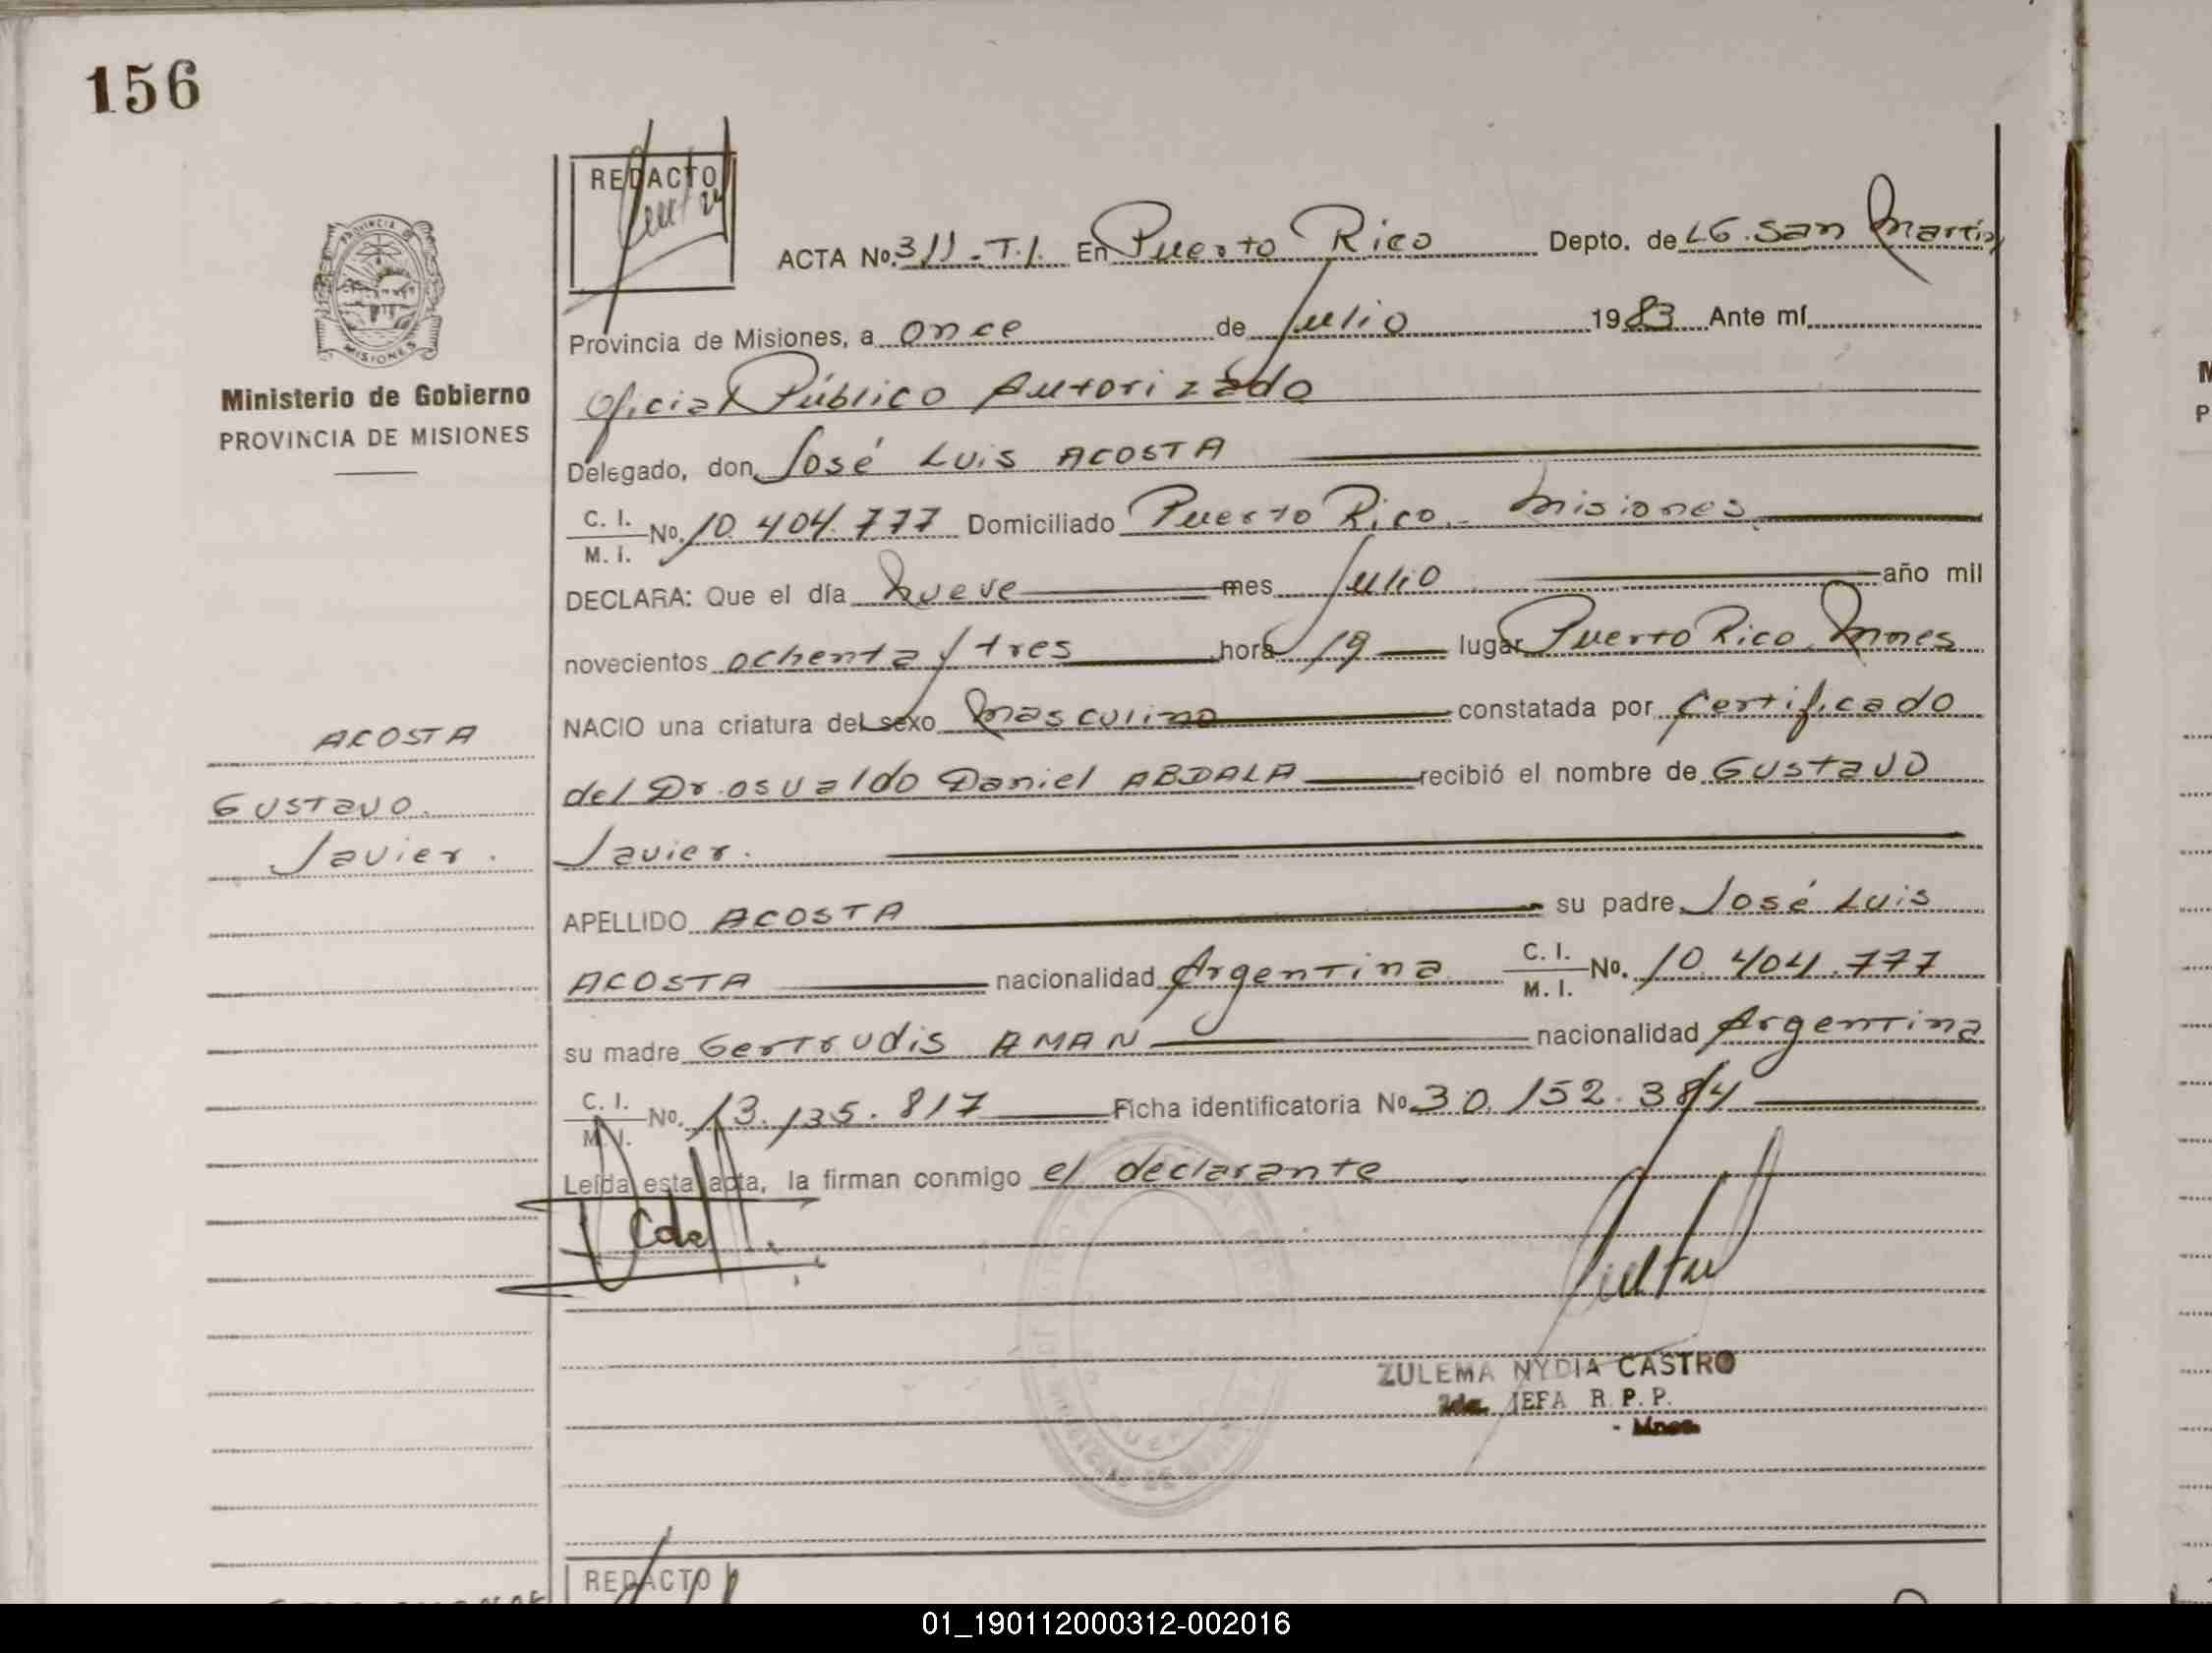 156
REDACTO
ACTA No. 311 - T.I. En Puerto Rico Depto. de LG. San Martín
Provincia de Misiones, a once de Julio 1983 Ante mí
Oficial Público Autorizado
Delegado, don José Luis ACOSTA
C. I. M. I. No. 10.404.777 Domiciliado Puerto Rico - Misiones
DECLARA: Que el día nueve mes Julio año mil
novecientos ochenta y tres hora 19 lugar Puerto Rico Mnes
NACIO una criatura del sexo masculino constatada por Certificado
del Dr. Osvaldo Daniel ABDALA recibió el nombre de Gustavo
Javier.
APELLIDO ACOSTA su padre José Luis
ACOSTA nacionalidad Argentina C. I. M. I. No. 10.404.777
su madre Gertrudis AMAN nacionalidad Argentina
C. I. M. I. No. 13.135.817 Ficha identificatoria No 30.152.384
Leída esta acta, la firman conmigo el declarante
ZULEMA NYDIA CASTRO
2da. JEFA R. P. P.
- Mnes.
PROVINCIA DE
MISIONES
Ministerio de Gobierno
PROVINCIA DE MISIONES
ACOSTA
Gustavo.
Javier.
REDACTO
01_190112000312-002016